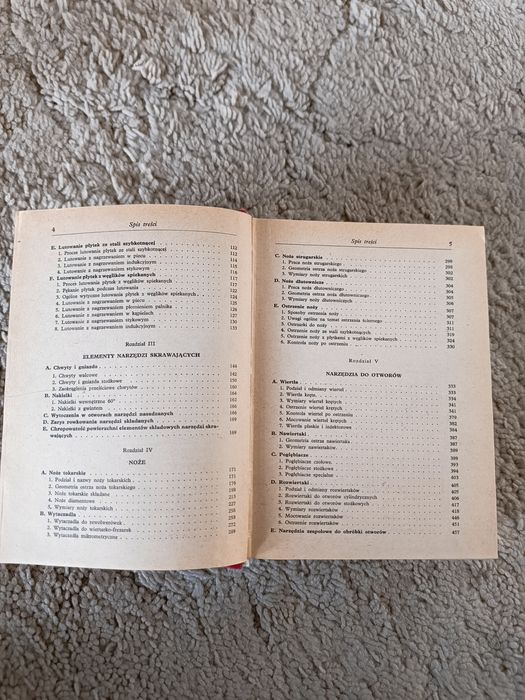 4 Spis treści
E. Lutowanie płytek ze stali szybkotnącej 112
1. Proces lutowania płytek ze stali szybkotnącej 112
2. Lutowanie z nagrzewaniem w piecu 113
3. Lutowanie z nagrzewaniem indukcyjnym 114
4. Lutowanie z nagrzewaniem stykowym 115
F. Lutowanie płytek z węglików spiekanych 116
1. Proces lutowania płytek z węglików spiekanych 117
2. Pękanie płytek podczas lutowania 122
3. Ogólne wytyczne lutowania płytek z węglików spiekanych 124
4. Lutowanie z nagrzewaniem w piecu
5. Lutowanie z nagrzewaniem płomieniem palnika
6. Lutowanie z nagrzewaniem w kąpielach 127
7. Lutowanie z nagrzewaniem stykowym 130
8. Lutowanie z nagrzewaniem indukcyjnym 133
Rozdział III
ELEMENTY NARZĘDZI SKRAWAJĄCYCH
A. Chwyty i gniazda 146
1. Chwyty walcowe 142
2. Chwyty i gniazda stożkowe 150
3. Zaokrąglenia przejściowe chwytów 160
B. Nakiełki 162
1. Nakiełki wewnętrzne 60° 162
2. Nakiełki z gwintem 166
C. Wytoczenia w otworach narzędzi nasadzanych 166
D. Zarys rowkowania narzędzi składanych 166
E. Chropowatość powierzchni elementów składowych narzędzi skrawających 169
Rozdział IV
NOŻE
A. Noże tokarskie 171
1. Podział i nazwy noży tokarskich 171
2. Geometria ostrza noża tokarskiego
3. Noże tokarskie składane
4. Noże diamentowe 213
5. Wymiary noży tokarskich 227
B. Wytaczadła 258
1. Wytaczadła do rewolwerówek 258
2. Wytaczadła do wiertarko-frezarek 272
3. Wytaczadła mikrometryczne
Spis treści 5
C. Noże strugarskie 298
1. Praca noża strugarskiego 298
2. Geometria ostrza noża strugarskiego 298
3. Wymiary noży strugarskich 302
D. Noże dłutownicze 304
1. Praca noża dłutowniczego 304
2. Geometria ostrza noża dłutowniczego 304
3. Wymiary noży dłutowniczych 305
E. Ostrzenie noży 307
1. Sposoby ostrzenia noży 307
2. Uwagi ogólne na temat ostrzenia ściernego 311
3. Ostrzarki do noży
4. Ostrzenie noży ze stali szybkotnących 319
5. Ostrzenie noży z płytkami z węglików spiekanych 324
6. Kontrola noży po ostrzeniu 330
Rozdział V
NARZĘDZIA DO OTWORÓW
A. Wiertła 333
1. Podział i odmiany wierteł 333
2. Wiertła kręte 334
3. Wymiary wierteł krętych 341
4. Ostrzenie wierteł krętych
5. Kontrola wierteł po ostrzeniu
6. Mocowanie wierteł krętych
7. Wiertła płaskie i lufowe 384
B. Nawiertaki 387
1. Geometria ostrza nawiertaka 387
2. Wymiary nawiertaków
C. Pogłębiacze 399
1. Pogłębiacze czołowe 399
2. Pogłębiacze stożkowe 403
3. Pogłębiacze specjalne
D. Rozwiertaki 405
1. Podział i odmiany rozwiertaków 405
2. Rozwiertaki do otworów cylindrycznych
3. Rozwiertaki do otworów stożkowych
4. Wymiary rozwiertaków 418
5. Mocowanie rozwiertaków 446
6. Ostrzenie rozwiertaków 451
E. Narzędzia zespołowe do obróbki otworów 457